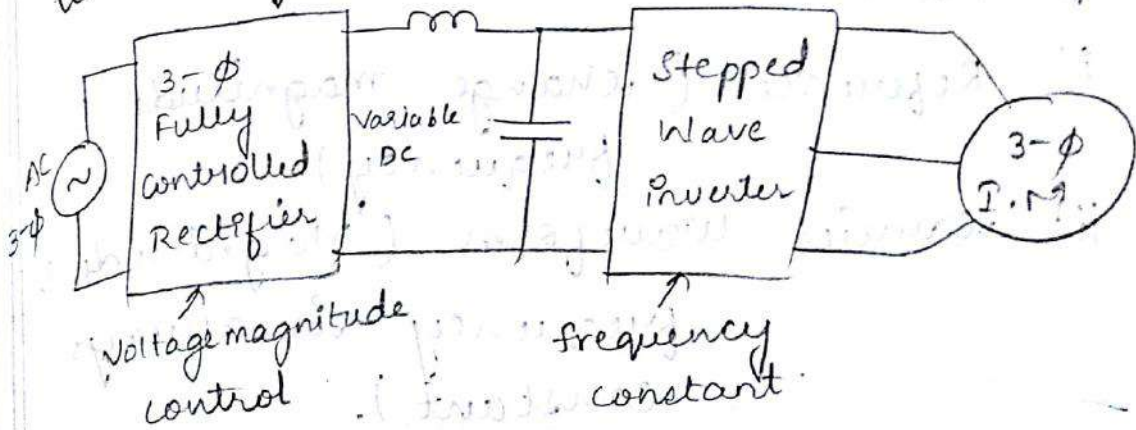 3-φ
Fully
controlled
Rectifier
AC
3-φ
Variable
DC
Stepped
Wave
inverter
3-φ
I.M.
Voltage magnitude
control
frequency
constant.